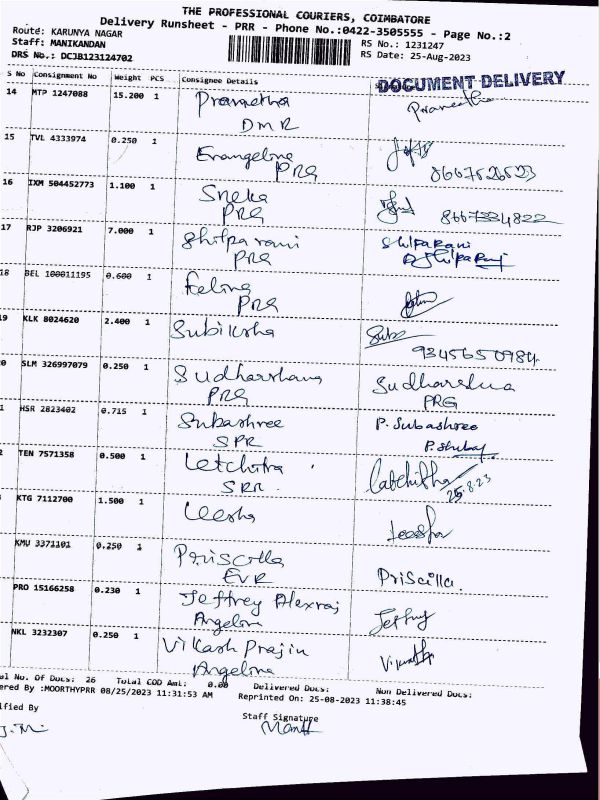 THE PROFESSIONAL COURIERS, COIMBATORE
Delivery Runsheet - PRR - Phone No.:0422-3505555 - Page No.:2
Route: KARUNYA NAGAR
RS No.: 1231247
Staff: MANIKANDAN
RS Date: 25-Aug-2023
DRS No.: DCJB123124702
S No Consignment No Weight PCS Consignee Details
DOCUMENT DELIVERY
14 MTP 1247088 15.200 1 Prametha
DMR
15 TVL 4333974 0.250 1 Evangeline
PRG 8667526523
16 IXM 504452773 1.100 1 Sneka
PRG 8667334822
17 RJP 3206921 7.000 1 Shilpa rani Shilpa Rani
PRG
18 BEL 100011195 0.600 1 Felina
PRG
19 KLK 8024620 2.400 1 Subiksha
9345650984
SLM 326997079 0.250 1 Sudharshana Sudharshna
PRG PRG
HSR 2823402 0.715 1 Subashree P. Subashree
SPR
TEN 7571358 0.500 1 Letchita
SRR 25.8.23
KTG 7112700 1.500 1 Leesha
KMU 3371101 0.250 1 Priscilla
EVR Priscilla.
PRO 15166258 0.230 1 Jeffrey Alexraj
Angeline
NKL 3232307 0.250 1 Vikash Prajin
Angeline
No. Of Docs: 26 Total COD Amt: 0.00 Delivered Docs: Non Delivered Docs:
By :MOORTHYPRR 08/25/2023 11:31:53 AM Reprinted On: 25-08-2023 11:38:45
By
Staff Signature